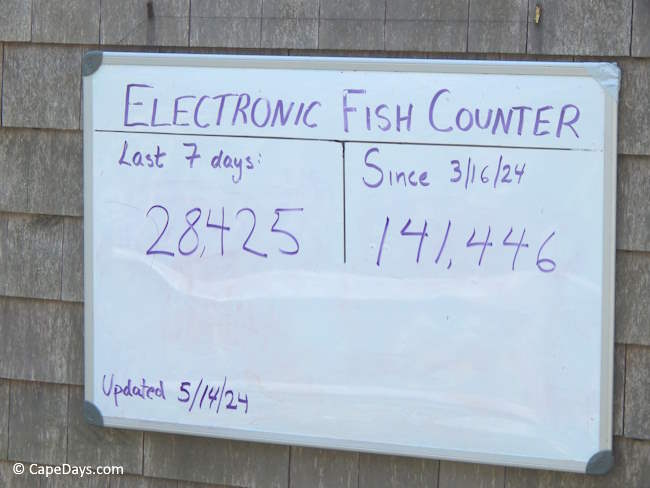 ELECTRONIC FISH COUNTER
Last 7 days:
28,425
Since 3/16/24
141,446
Updated 5/14/24
© CapeDays.com